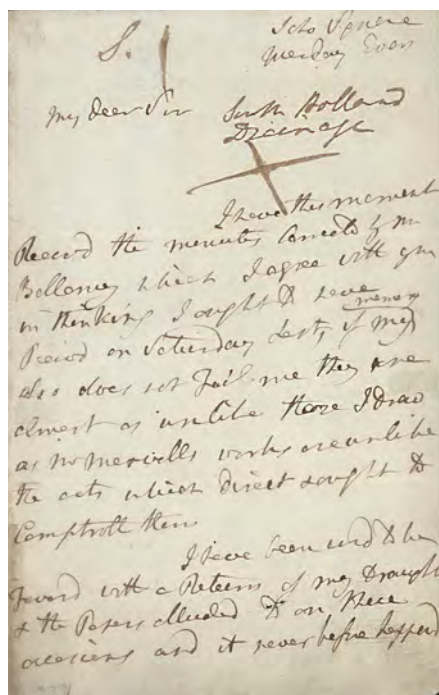 S.
Soho Square
Monday Even
My dear Sir South Holland
Drainage
I have this moment
Receivd the minutes Corrected by Mr
Bellamy which I agree with you
in thinking I ought to have
Receivd on Saturday Last, if my memory
also does not Fail me they are
almost as unlike those I draw
as Mr Maxwells works are unlike
the acts which direct & ought to
Comptroll them
I have been usd to be
Favord with a Return of my Draught
& the Papers alluded to on these
occasions and it never before happend